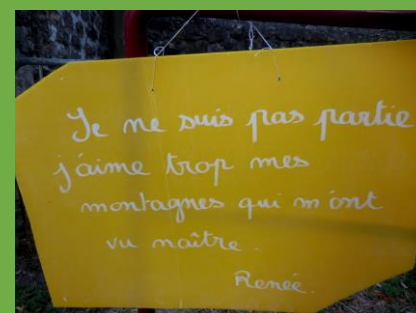 Je ne suis pas partie
j'aime trop mes
montagnes qui m'ont
vu naître.
Renée.